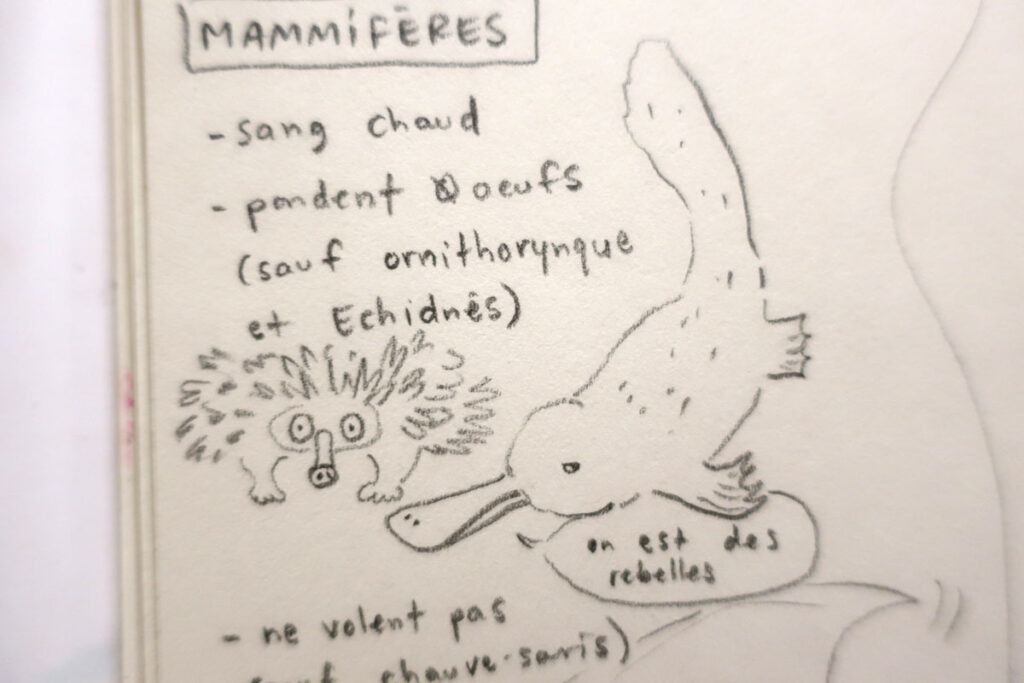 MAMMIFÈRES
- sang chaud
- pondent Ø oeufs
(sauf ornithorynque
et Echidnés)
on est des
rebelles
- ne volent pas
chauve-saris)